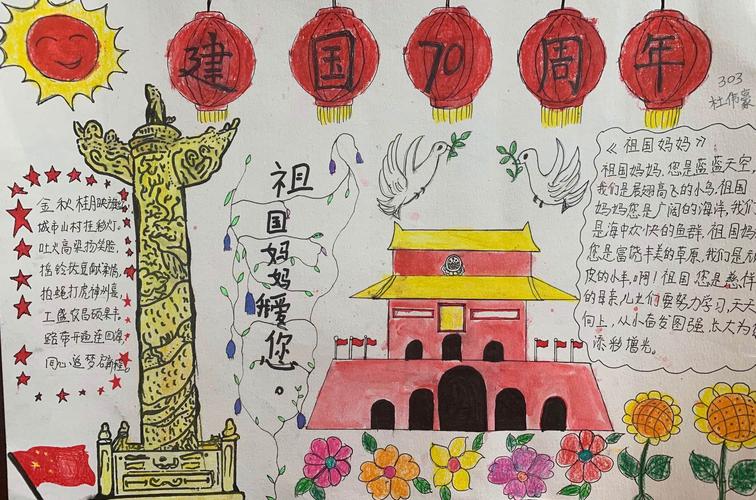 建国70周年
303
杜伟豪
祖国妈妈我爱您。
金秋桂月映
城市山村挂彩灯。
吐火高染扬笑脸，
拍蝇打虎神州
工盛农昌硕果丰，
同心追梦
《祖国妈妈》
祖国妈妈，您是蓝蓝天空，
我们是展翅高飞的小鸟。祖国
妈妈您是广阔的海洋，我们
是海中欢快的鱼群。祖国妈
您是富饶丰美的草原，我们是
皮的小羊，啊！祖国您是慈祥
的母亲儿女们要努力学习，天天
向上，从小奋发图强，长大为
添彩增光。